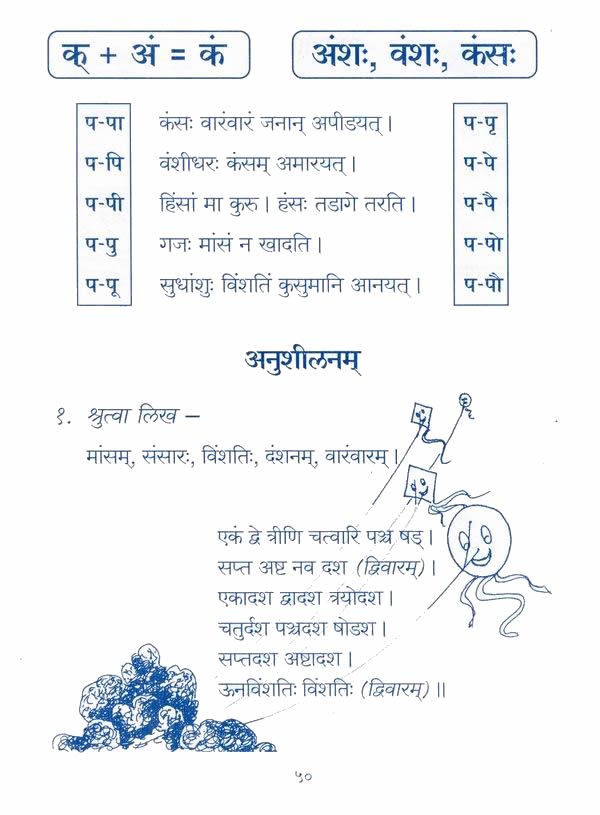 क् + अं = कं
अंशः, वंशः, कंसः
प-पा कंसः वारंवारं जनान् अपीडयत् । प-पृ
प-पि वंशीधरः कंसम् अमारयत् । प-पे
प-पी हिंसां मा कुरु । हंसः तडागे तरति । प-पै
प-पु गजः मांसं न खादति । प-पो
प-पू सुधांशुः विंशतिं कुसुमानि आनयत् । प-पौ
अनुशीलनम्
१. श्रुत्वा लिख –
मांसम्, संसारः, विंशतिः, दंशनम्, वारंवारम् ।
एकं द्वे त्रीणि चत्वारि पञ्च षड् ।
सप्त अष्ट नव दश (द्विवारम्) ।
एकादश द्वादश त्रयोदश ।
चतुर्दश पञ्चदश षोडश ।
सप्तदश अष्टादश ।
ऊनविंशतिः विंशतिः (द्विवारम्) ॥
५०